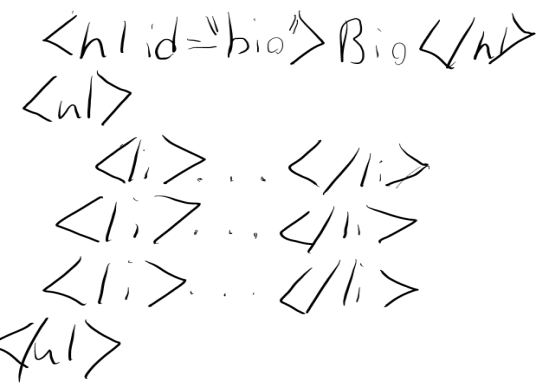 <h1 id="bio">Bio</h1>
<ul>
<li>...</li>
<li>...</li>
<li>...</li>
</ul>